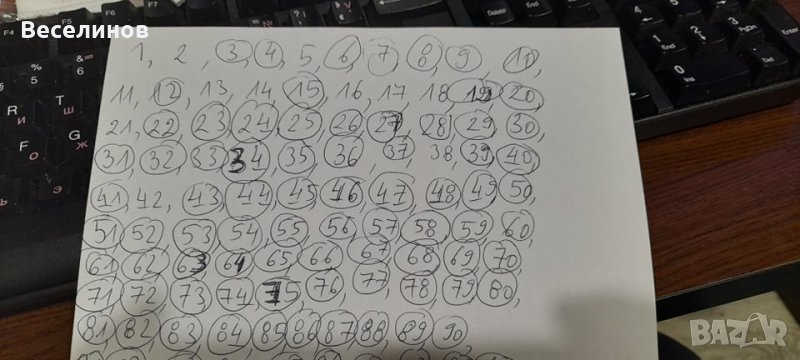 Веселинов
1, 2, 3, 4, 5, 6, 7, 8, 9, 10,
11, 12, 13, 14, 15, 16, 17, 18, 19, 20,
21, 22, 23, 24, 25, 26, 27, 28, 29, 30,
31, 32, 33, 34, 35, 36, 37, 38, 39, 40,
41, 42, 43, 44, 45, 46, 47, 48, 49, 50,
51, 52, 53, 54, 55, 56, 57, 58, 59, 60,
61, 62, 63, 64, 65, 66, 67, 68, 69, 70,
71, 72, 73, 74, 75, 76, 77, 78, 79, 80,
81, 82, 83, 84, 85, 86, 87, 88, 89, 90,
BAZAR